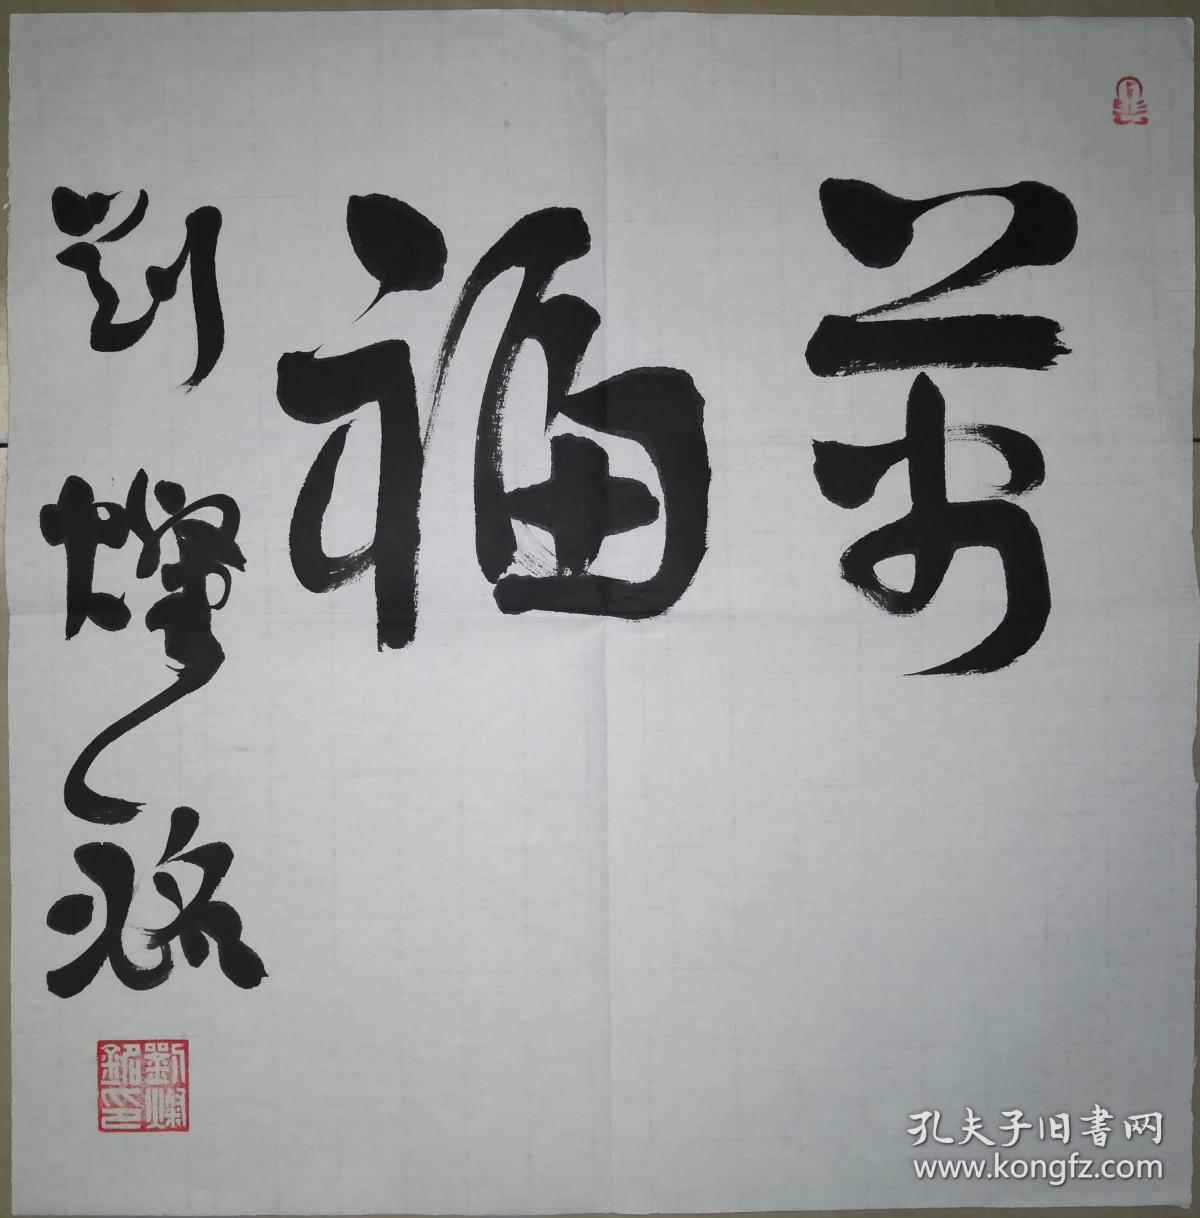 萬福
劉燦銘
劉燦銘印
孔夫子旧書网
www.kongfz.com